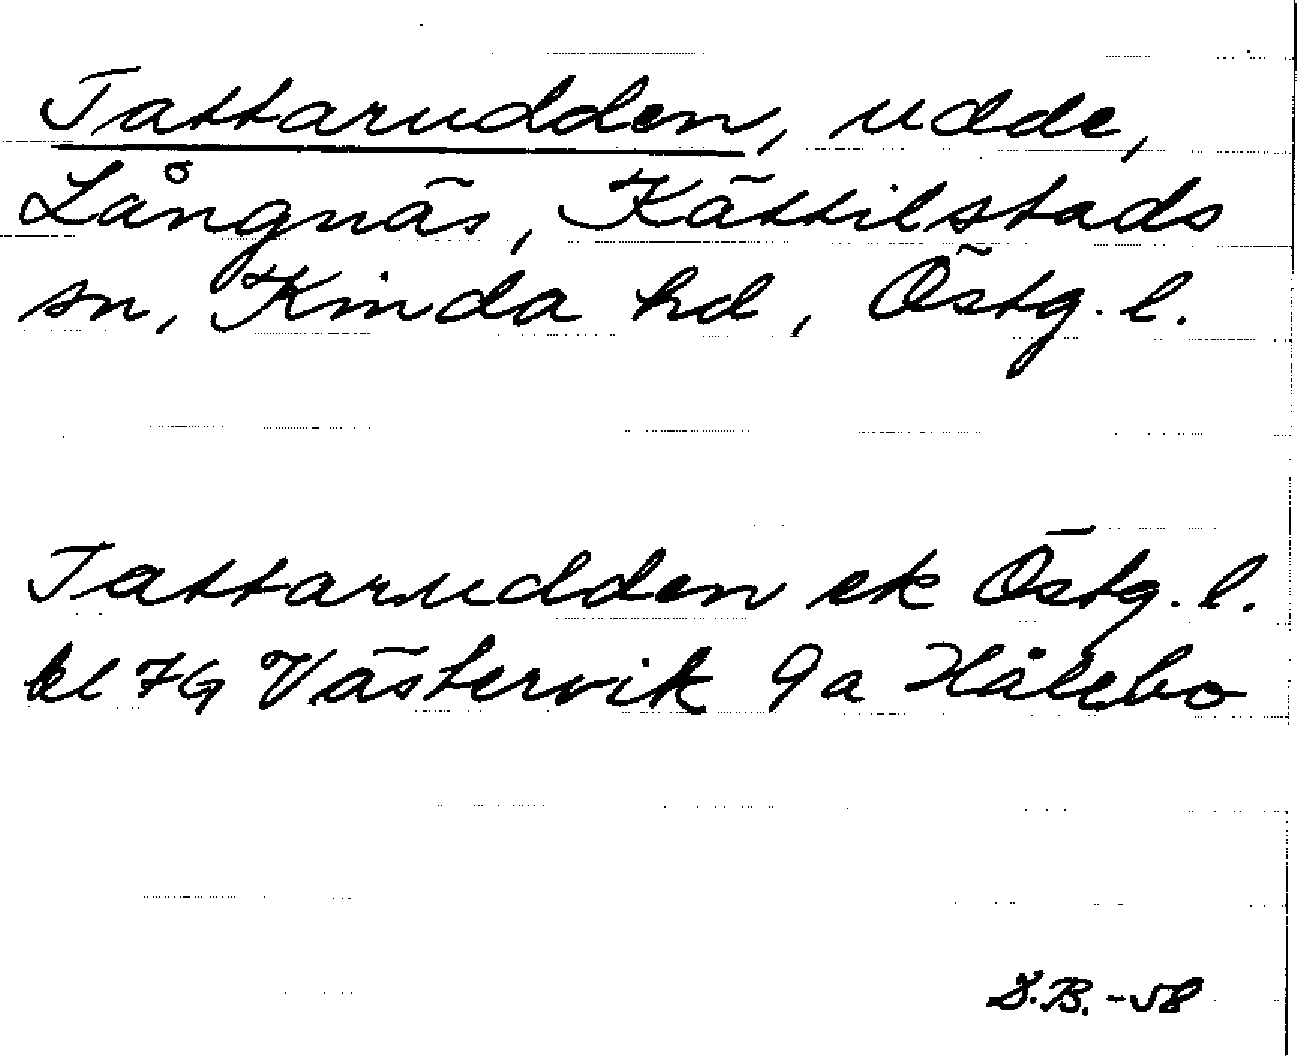 Tattarudden, udde,
Långnäs, Kättilstads
sn, Kinda hd, Östg. l.
Tattarudden ek Östg. l.
bl 7G Västervik 9a Hålebo
S.B. -58